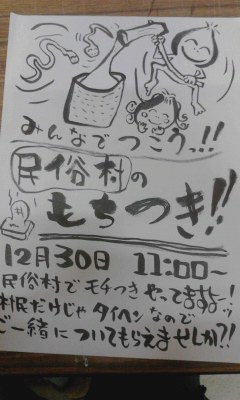 みんなでつこうっ!!
民俗村の
もちつき!!
12月30日 11:00〜
民俗村でモチつきやってますよーッ!
村民だけじゃタイヘンなので
ご一緒についてもらえませんか?!